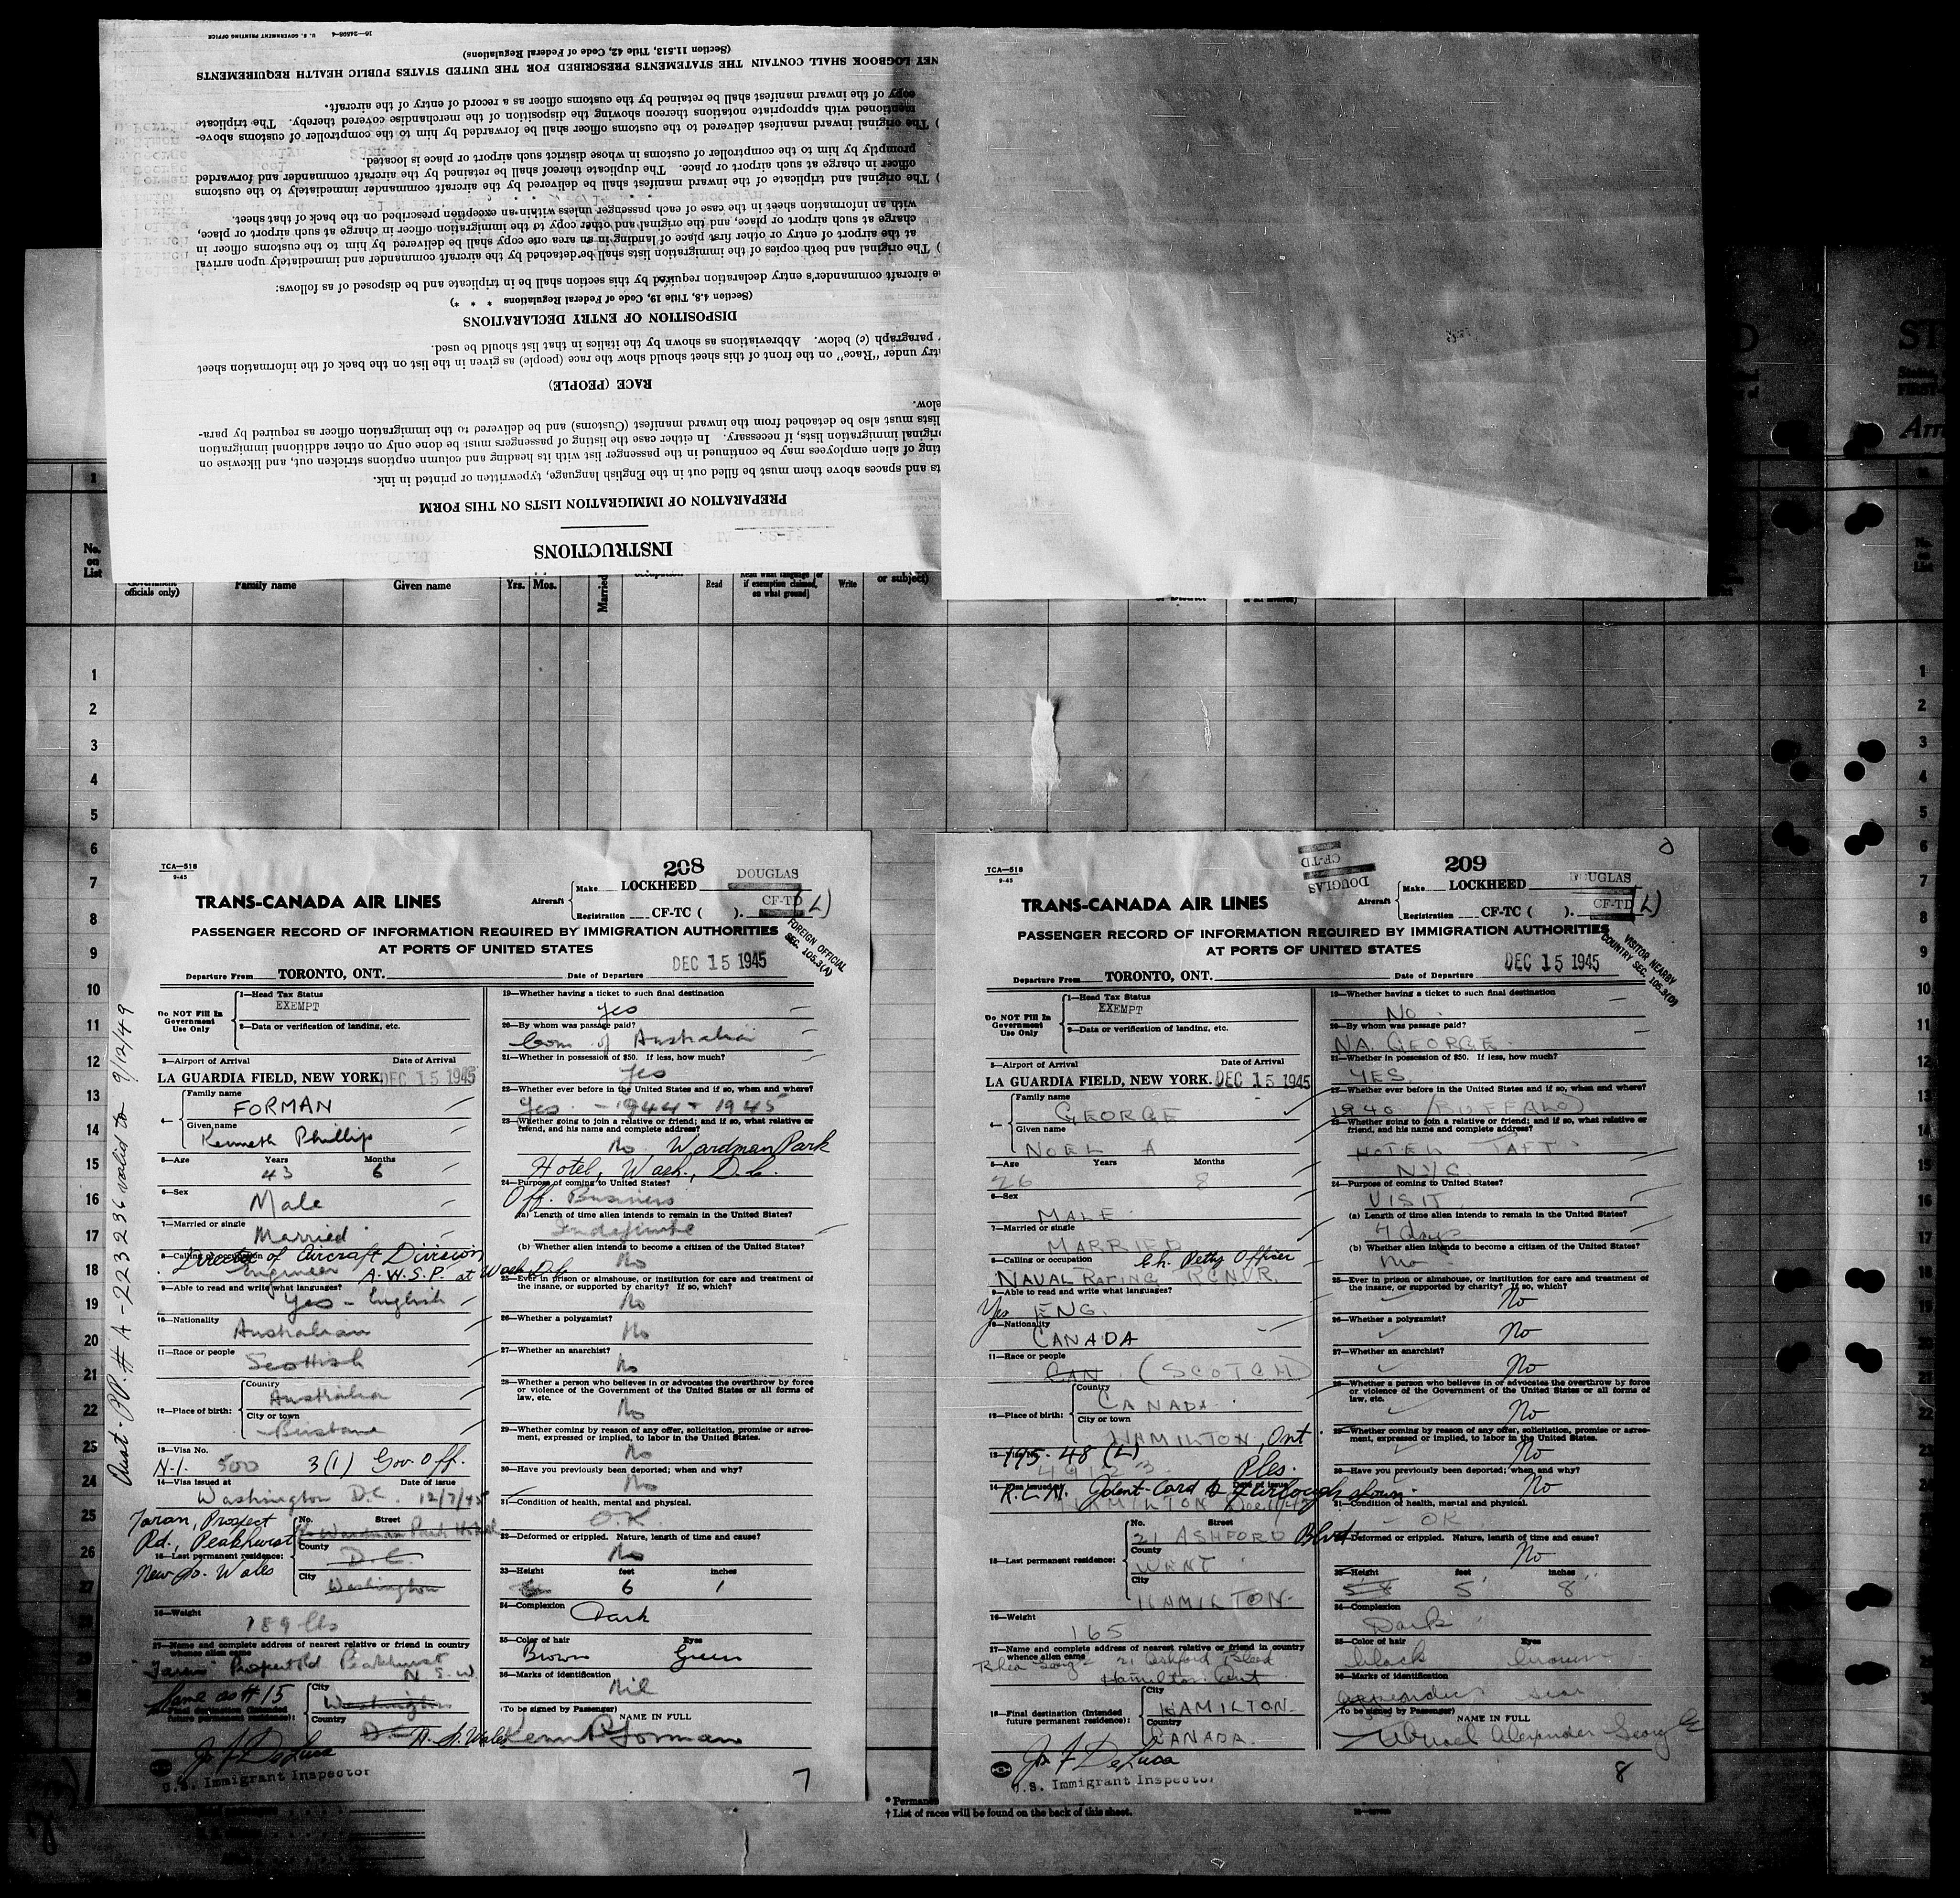 INSTRUCTIONS
PREPARATION OF IMMIGRATION LISTS ON THIS FORM
ts and spaces above them must be filled out in the English language, typewritten or printed in ink.
ting of alien employees may be continued in the passenger list with its heading and column captions stricken out, and likewise on
original immigration lists, if necessary. In either case the listing of passengers must be done only on other additional immigration
lists must also be detached from the inward manifest (Customs) and be delivered to the immigration officer as required by para-
below.
RACE (PEOPLE)
try under "Race" on the front of this sheet should show the race (people) as given in the list on the back of the information sheet
paragraph (c) below. Abbreviations as shown by the italics in that list should be used.
DISPOSITION OF ENTRY DECLARATIONS
(Section 4.8, Title 19, Code of Federal Regulations * * *)
e aircraft commander's entry declaration required by this section shall be in triplicate and be disposed of as follows:
) The original and both copies of the immigration lists shall be detached by the aircraft commander and immediately upon arrival
at the airport of entry or other first place of landing in an area one copy shall be delivered by him to the customs officer in
charge at such airport or place, and the original and other copy to the immigration officer in charge at such airport or place,
with an information sheet in the case of each passenger unless within an exception prescribed on the back of that sheet.
) The original and triplicate of the inward manifest shall be delivered by the aircraft commander immediately to the customs
officer in charge at such airport or place. The duplicate thereof shall be retained by the aircraft commander and forwarded
promptly by him to the comptroller of customs in whose district such airport or place is located.
) The original inward manifest delivered to the customs officer shall be forwarded by him to the comptroller of customs above-
mentioned with appropriate notations thereon showing the disposition of the merchandise covered thereby. The triplicate
copy of the inward manifest shall be retained by the customs officer as a record of entry of the aircraft.
NET LOGBOOK SHALL CONTAIN THE STATEMENTS PRESCRIBED FOR THE UNITED STATES PUBLIC HEALTH REQUIREMENTS
(Section 11.513, Title 42, Code of Federal Regulations)
16—24808-4 U. S. GOVERNMENT PRINTING OFFICE
No. on List
officials only)
Family name
Given name
Yrs. Mos.
Married
Read
if exemption claimed, on what ground)
Write
or subject)
1
2
3
4
5
6
7
8
9
10
11
12
13
14
15
16
17
18
19
20
21
22
25
24
25
26
TCA—518
9-45
208
DOUGLAS
Aircraft
Make LOCKHEED
Registration CF-TC ( ).
CF-TD L)
TRANS-CANADA AIR LINES
PASSENGER RECORD OF INFORMATION REQUIRED BY IMMIGRATION AUTHORITIES
AT PORTS OF UNITED STATES
FOREIGN OFFICIAL
SEC. 105.3(A)
Departure From TORONTO, ONT. Date of Departure DEC 15 1945
Aust. PP. # A-223236 valid to 9/12/49
Do NOT Fill In Government Use Only
1—Head Tax Status
EXEMPT
2—Data or verification of landing, etc.
3—Airport of Arrival Date of Arrival
LA GUARDIA FIELD, NEW YORK. DEC 15 1945
4—
Family name
FORMAN
Given name
Kenneth Phillip
5—Age Years Months
43 6
6—Sex
Male
7—Married or single
Married
8—Calling or occupation
Director of Aircraft Division
Engineer A.W.S.P. at Wash D.C.
9—Able to read and write what languages?
Yes - English
10—Nationality
Australian
11—Race or people
Scottish
12—Place of birth:
Country
Australia
City or town
Brisbane
13—Visa No.
N-1. 500 3(1) Gov. Off.
14—Visa issued at Date of issue
Washington D.C. 12/7/45
Taran, Prospect
Rd., Peakhurst
New So. Wales
15—Last permanent residence:
No. Street
Wardman Park Hotel
County
D.C.
City
Washington
16—Weight
189 lbs
17—Name and complete address of nearest relative or friend in country
whence alien came
"Taran" Prospect Rd Peakhurst
N. S. W.
Same as # 15
18—Final destination (Intended future permanent residence):
City
Washington
Country
D.C. N. S. Wales
Jos F DeLuca
U.S. Immigrant Inspector
19—Whether having a ticket to such final destination
yes
20—By whom was passage paid?
Com of Australia
21—Whether in possession of $50. If less, how much?
Yes
22—Whether ever before in the United States and if so, when and where?
Yes - 1944 - 1945
23—Whether going to join a relative or friend; and if so, what relative or
friend, and his name and complete address?
No Wardman Park
Hotel, Wash., D.C.
24—Purpose of coming to United States?
Off. Business
(a) Length of time alien intends to remain in the United States?
Indefinite
(b) Whether alien intends to become a citizen of the United States?
No
25—Ever in prison or almshouse, or institution for care and treatment of
the insane, or supported by charity? If so, which?
No
26—Whether a polygamist?
No
27—Whether an anarchist?
No
28—Whether a person who believes in or advocates the overthrow by force
or violence of the Government of the United States or all forms of
law, etc.
No
29—Whether coming by reason of any offer, solicitation, promise or agree-
ment, expressed or implied, to labor in the United States.
No
30—Have you previously been deported; when and why?
No
31—Condition of health, mental and physical.
O.K.
32—Deformed or crippled. Nature, length of time and cause?
No
33—Height feet inches
6 1
34—Complexion
Dark
35—Color of hair Eyes
Brown Green
36—Marks of identification
Nil
(To be signed by Passenger) NAME IN FULL
Kenn P Forman
7
TCA—518
9-45
DOUGLAS
CF-TD
209
DOUGLAS
Aircraft
Make LOCKHEED
Registration CF-TC ( ).
CF-TD L)
TRANS-CANADA AIR LINES
PASSENGER RECORD OF INFORMATION REQUIRED BY IMMIGRATION AUTHORITIES
AT PORTS OF UNITED STATES
VISITOR NEARBY
COUNTRY SEC. 105.3(D)
Departure From TORONTO, ONT. Date of Departure DEC 15 1945
Do NOT Fill In Government Use Only
1—Head Tax Status
EXEMPT
2—Data or verification of landing, etc.
3—Airport of Arrival Date of Arrival
LA GUARDIA FIELD, NEW YORK. DEC 15 1945
4—
Family name
GEORGE
Given name
NOEL A
5—Age Years Months
26 8
6—Sex
MALE
7—Married or single
MARRIED
8—Calling or occupation Ch. Petty Officer
NAVAL RATING RCNVR.
9—Able to read and write what languages?
Yes ENG.
10—Nationality
CANADA
11—Race or people
CAN (SCOTCH)
12—Place of birth:
Country
CANADA
City or town
HAMILTON, Ont.
195-48 (L)
R.C.N. Ident-Card & Furlough shown.
HAMILTON
15—Last permanent residence:
No. Street
21 ASHFORD Blvd
County
WENT
City
HAMILTON
16—Weight
165
17—Name and complete address of nearest relative or friend in country
whence alien came
Hamilton Ont
18—Final destination (Intended future permanent residence):
City
HAMILTON
Country
CANADA.
Jos F DeLuca
U.S. Immigrant Inspector
19—Whether having a ticket to such final destination
No
20—By whom was passage paid?
NA. GEORGE
21—Whether in possession of $50. If less, how much?
YES.
22—Whether ever before in the United States and if so, when and where?
1940 (BUFFALO)
23—Whether going to join a relative or friend; and if so, what relative or
friend, and his name and complete address?
HOTEL TAFT
NYC
24—Purpose of coming to United States?
VISIT
(a) Length of time alien intends to remain in the United States?
4 days
(b) Whether alien intends to become a citizen of the United States?
No
25—Ever in prison or almshouse, or institution for care and treatment of
the insane, or supported by charity? If so, which?
No
26—Whether a polygamist?
No
27—Whether an anarchist?
No
28—Whether a person who believes in or advocates the overthrow by force
or violence of the Government of the United States or all forms of
law, etc.
No
29—Whether coming by reason of any offer, solicitation, promise or agree-
ment, expressed or implied, to labor in the United States.
No
30—Have you previously been deported; when and why?
No
31—Condition of health, mental and physical.
OK
32—Deformed or crippled. Nature, length of time and cause?
No
33—Height feet inches
5' 8"
34—Complexion
Dark
35—Color of hair Eyes
black brown
36—Marks of identification
appendix scar
(To be signed by Passenger) NAME IN FULL
Noel Alexander George
8
* Permane
† List of races will be found on the back of this sheet.